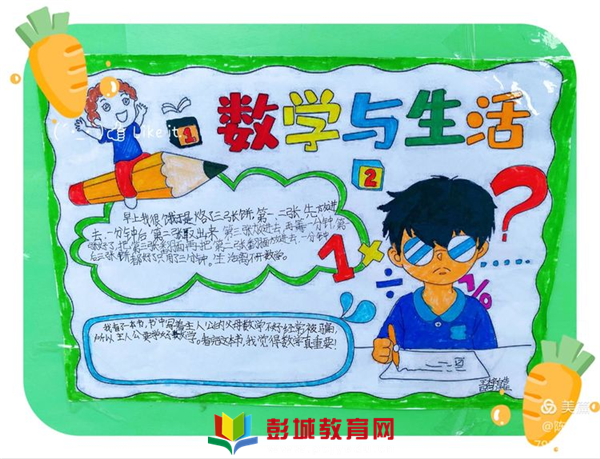 Like it
数学与生活
1
2
早上我很饿于是烙了三张饼,第一、二张先放进
去,一分钟后,第二张取出来,第三张放进去,再等一分钟,第
一张好了,把第三张翻面再把第二张翻面放进去,一分钟
后三张饼都好了,只用了三分钟。生活离不开数学。
1
×
÷
?
%
我看了一本书,书中写着主人公的父母数学不好经常被骗,
所以主人公要学好数学。看完这本书,我觉得数学真重要!
彭城教育网
美